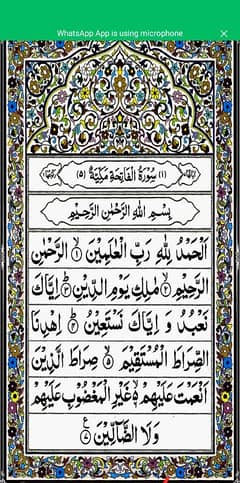 WhatsApp App is using microphone
(١) سُوْرَةُ الْفَاتِحَةِ مَكِّيَّةٌ (٥)
بِسْمِ اللهِ الرَّحْمٰنِ الرَّحِيْمِ
اَلْحَمْدُ لِلّٰهِ رَبِّ الْعٰلَمِيْنَ ۙ۱ الرَّحْمٰنِ
الرَّحِيْمِ ۙ۲ مٰلِكِ يَوْمِ الدِّيْنِ ؕ۳ اِيَّاكَ
نَعْبُدُ وَ اِيَّاكَ نَسْتَعِيْنُ ؕ۴ اِهْدِنَا
الصِّرَاطَ الْمُسْتَقِيْمَ ۙ۵ صِرَاطَ الَّذِيْنَ
اَنْعَمْتَ عَلَيْهِمْ ۙ۬۶ غَيْرِ الْمَغْضُوْبِ عَلَيْهِمْ
وَلَا الضَّآلِّيْنَ ۧ۷